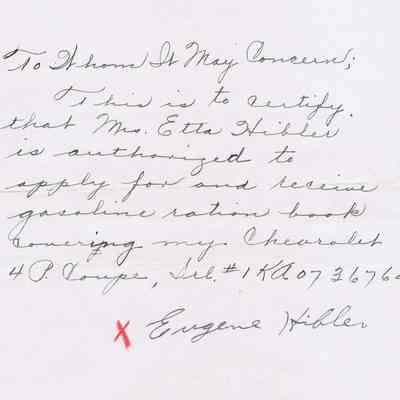 To Whom It May Concern;
This is to certify.
that Mrs. Etta Hibler
is authorized to
apply for and receive
gasoline ration book
covering my Chevrolet
4 P. Coupe, Srl. #1 KA 07 3676
X Eugene Hibler